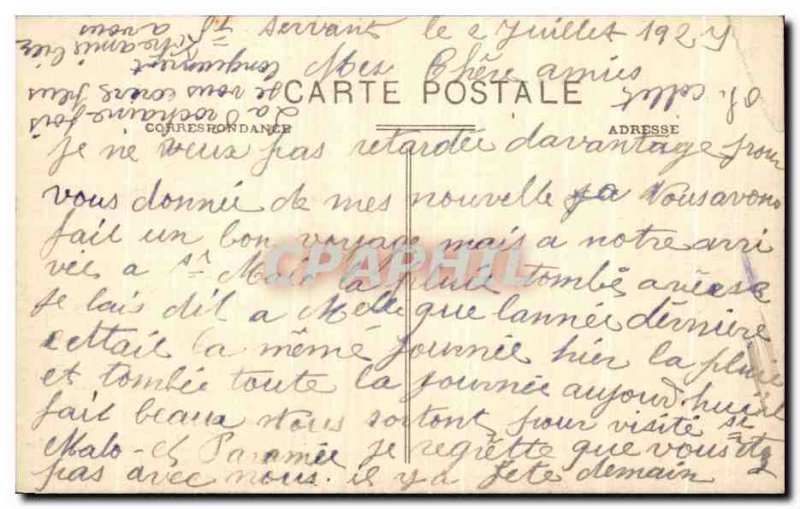 St Servant le 2 Juillet 192
Mes Chère amies
CARTE POSTALE
CORRESPONDANCE
ADRESSE
je ne veux pas retardée davantage pour
vous donnée de mes nouvelle Nous avons
fait un bon voyage mais a notre arri
vée a St Malo la pluie tombé
je lais dit a Melle que lannée dernière
cettait la même journée hier la pluie
et tombée toute la journée aujourd'hui il
fait beaux Nous sortont pour visité St
Malo et Paramée je regrette que vous
pas avec nous. il y a fete demain
La Prochaine fois
je vous écrire plus
longuement
a vous
CPAPHIL